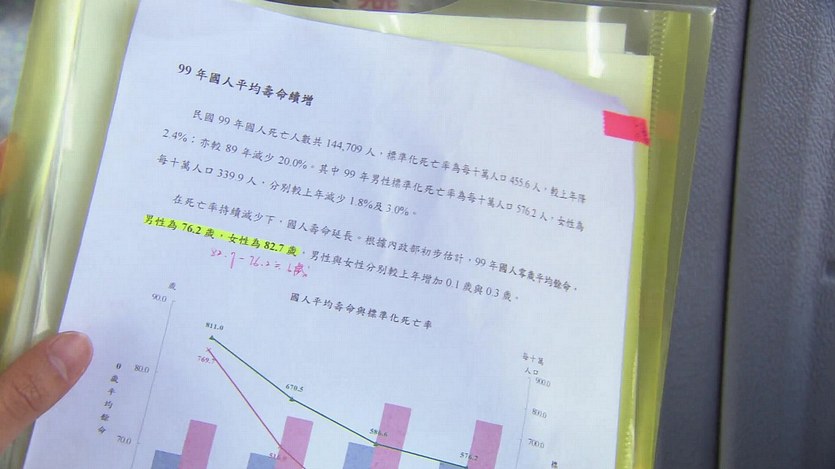 99 年國人平均壽命續增
民國 99 年國人死亡人數共 144,709 人，標準化死亡率為每十萬人口 455.6 人，較上年降
2.4%；亦較 89 年減少 20.0%。其中 99 年男性標準化死亡率為每十萬人口 576.2 人，女性為
每十萬人口 339.9 人，分別較上年減少 1.8%及 3.0%。
在死亡率持續減少下，國人壽命延長。根據內政部初步估計，99 年國人零歲平均餘命，
男性為 76.2 歲，女性為 82.7 歲，男性與女性分別較上年增加 0.1 歲與 0.3 歲。
82.7-76.2=6歲
國人平均壽命與標準化死亡率
歲
每十萬
人口
90.0
80.0
70.0
0歲平均餘命
900.0
800.0
700.0
標
811.0
670.5
576.2